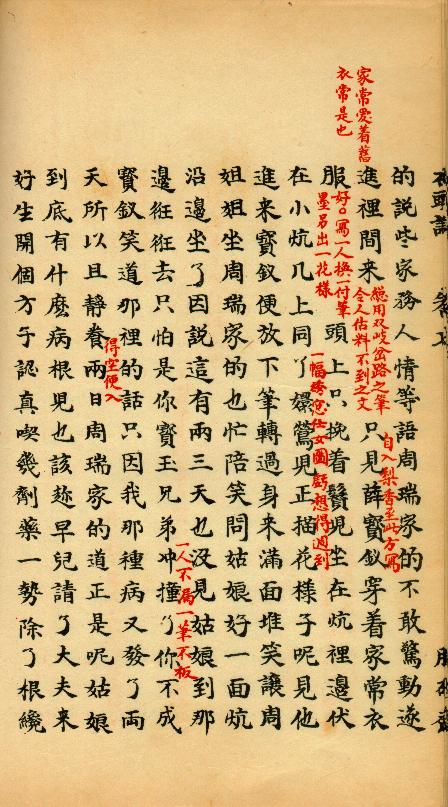 的說些家務人情等語周瑞家的不敢驚動遂
家常愛着舊
衣常是也
進裡間來
總用双歧岔路之筆
令人估料不到之文
只見薛寶釵穿着家常衣
自入梨香至此方寫
服
好〇寫一人換一付筆
墨另出一花樣
頭上只挽着䰖兒坐在炕裡邊伏
一幅綉窓仕女圖虧想得週到
在小炕几上同丫鬟鶯兒正描花樣子呢見他
進來寶釵便放下筆轉過身來滿面堆笑讓周
姐姐坐周瑞家的也忙陪笑問姑娘好一面炕
沿邊坐了因說這有兩三天也没見姑娘到那
一人不漏一筆不板
邊徃徃去只怕是你寶玉兄弟冲撞了你不成
寶釵笑道那裡的話只因我那種病又發了兩
得空便入
天所以且静養兩日周瑞家的道正是呢姑娘
到底有什麽病根兒也該趂早兒請了大夫來
好生開個方子認真喫幾劑藥一勢除了根纔